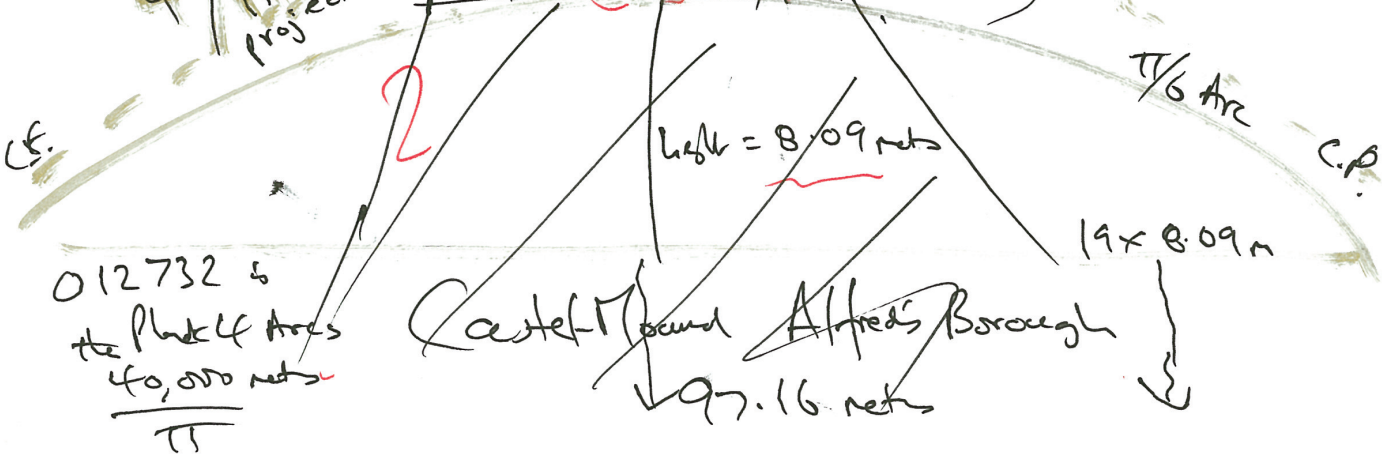 proj
2
π/6 Arc
C.P.
height = 8.09 mets
19 x 8.09 m
012732 is
the Planck 4 Arcs
40,000 mets
π
Castel-Mound Alfred's Borough
97.16 mets